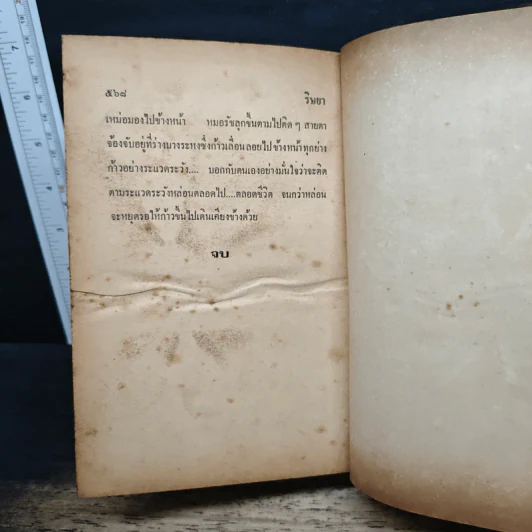 ๕๖๘ ริษยา
เหม่อมองไปข้างหน้า หมอรัชลุกขึ้นตามไปติด ๆ สายตา
จ้องจับอยู่ที่ร่างบางระหงซึ่งก้าวเลื่อนลอยไปข้างหน้าทุกย่าง
ก้าวอย่างระแวดระวัง.... บอกกับตนเองอย่างมั่นใจว่าจะคิด
ตามระแวดระวังหล่อนตลอดไป....ตลอดชีวิต จนกว่าหล่อน
จะหยุดรอให้ก้าวขึ้นไปเดินเคียงข้างด้วย
จบ
7
6
5